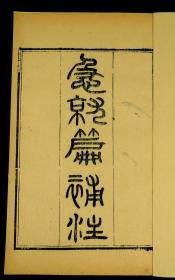 急就篇補注